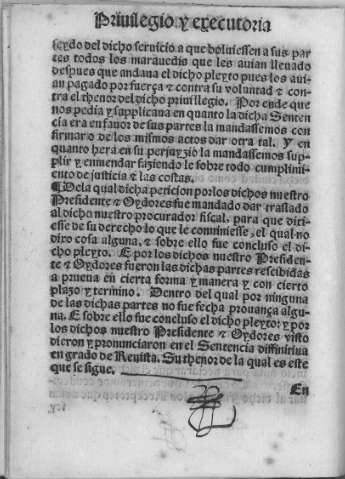 Priuilegio y executoria
seydo del dicho seruicio a que boluiessen a sus par
tes todos los marauedis que les auian lleuado
despues que andaua el dicho pleyto pues los aui
an pagado por fuerça & contra su voluntad & con-
tra el thenor del dicho priuillegio. Por ende que
nos pedia y supplicaua en quanto la dicha Senten
cia era en fauor de sus partes la mandassemos con
firmar o de los mismos actos dar otra tal. Y en
quanto hera en su perjuyzio la mandassemos sup-
plir y enmendar faziendo le sobre todo cumplimi-
ento de justicia & las costas.
¶ De la qual dicha peticion por los dichos nuestro
Presidente & Oydores fue mandado dar traslado
al dicho nuestro procurador fiscal, para que dixi-
esse de su derecho lo que le conuiniesse, el qual no
dixo cosa alguna, & sobre ello fue concluso el di-
cho pleyto. E por los dichos nuestro Presiden-
te & Oydores fueron las dichas partes rescebidas
a prueua en cierta forma y manera y con cierto
plazo y termino. Dentro del qual por ninguna
de las dichas partes no fue fecha prouança algu-
na. E sobre ello fue concluso el dicho pleyto: y por
los dichos nuestro Presidente & Oydores visto
dieron y pronunciaron en el Sentencia diffinitiua
en grado de Reuista. Su thenor de la qual es este
que se sigue.
En